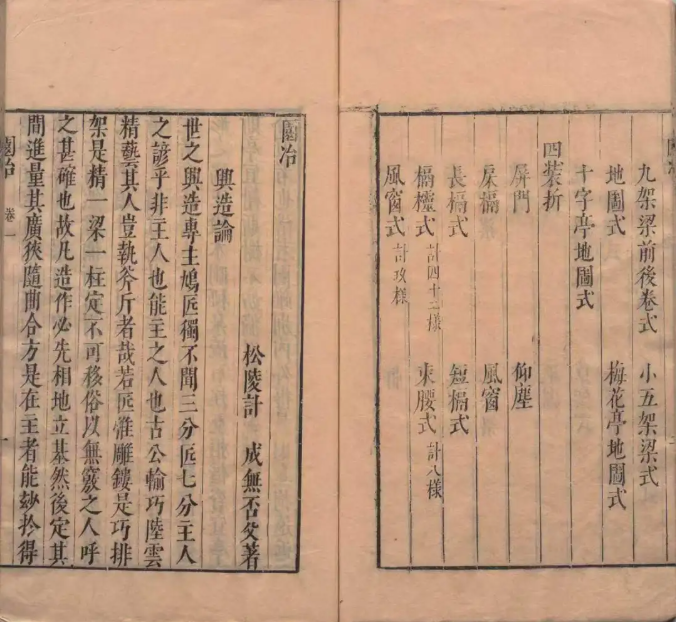 九架梁前後卷式 小五架梁式
地圖式 梅花亭地圖式
十字亭地圖式
四裝折
屏門 仰塵
床槅 風窗
長槅式 短槅式
槅櫺式 計四十三樣 束腰式 計八樣
風窗式 計玖樣
園冶
興造論
松陵計 成無否父著
世之興造專主鳩匠獨不聞三分匠七分主人
之諺乎非主人也能主之人也古公輸巧陸雲
精藝其人豈執斧斤者哉若匠惟雕鏤是巧排
架是精一梁一柱定不可移俗以無竅之人呼
之甚確也故凡造作必先相地立基然後定其
間進量其廣狹隨曲合方是在主者能玅扵得
園冶 卷一 一